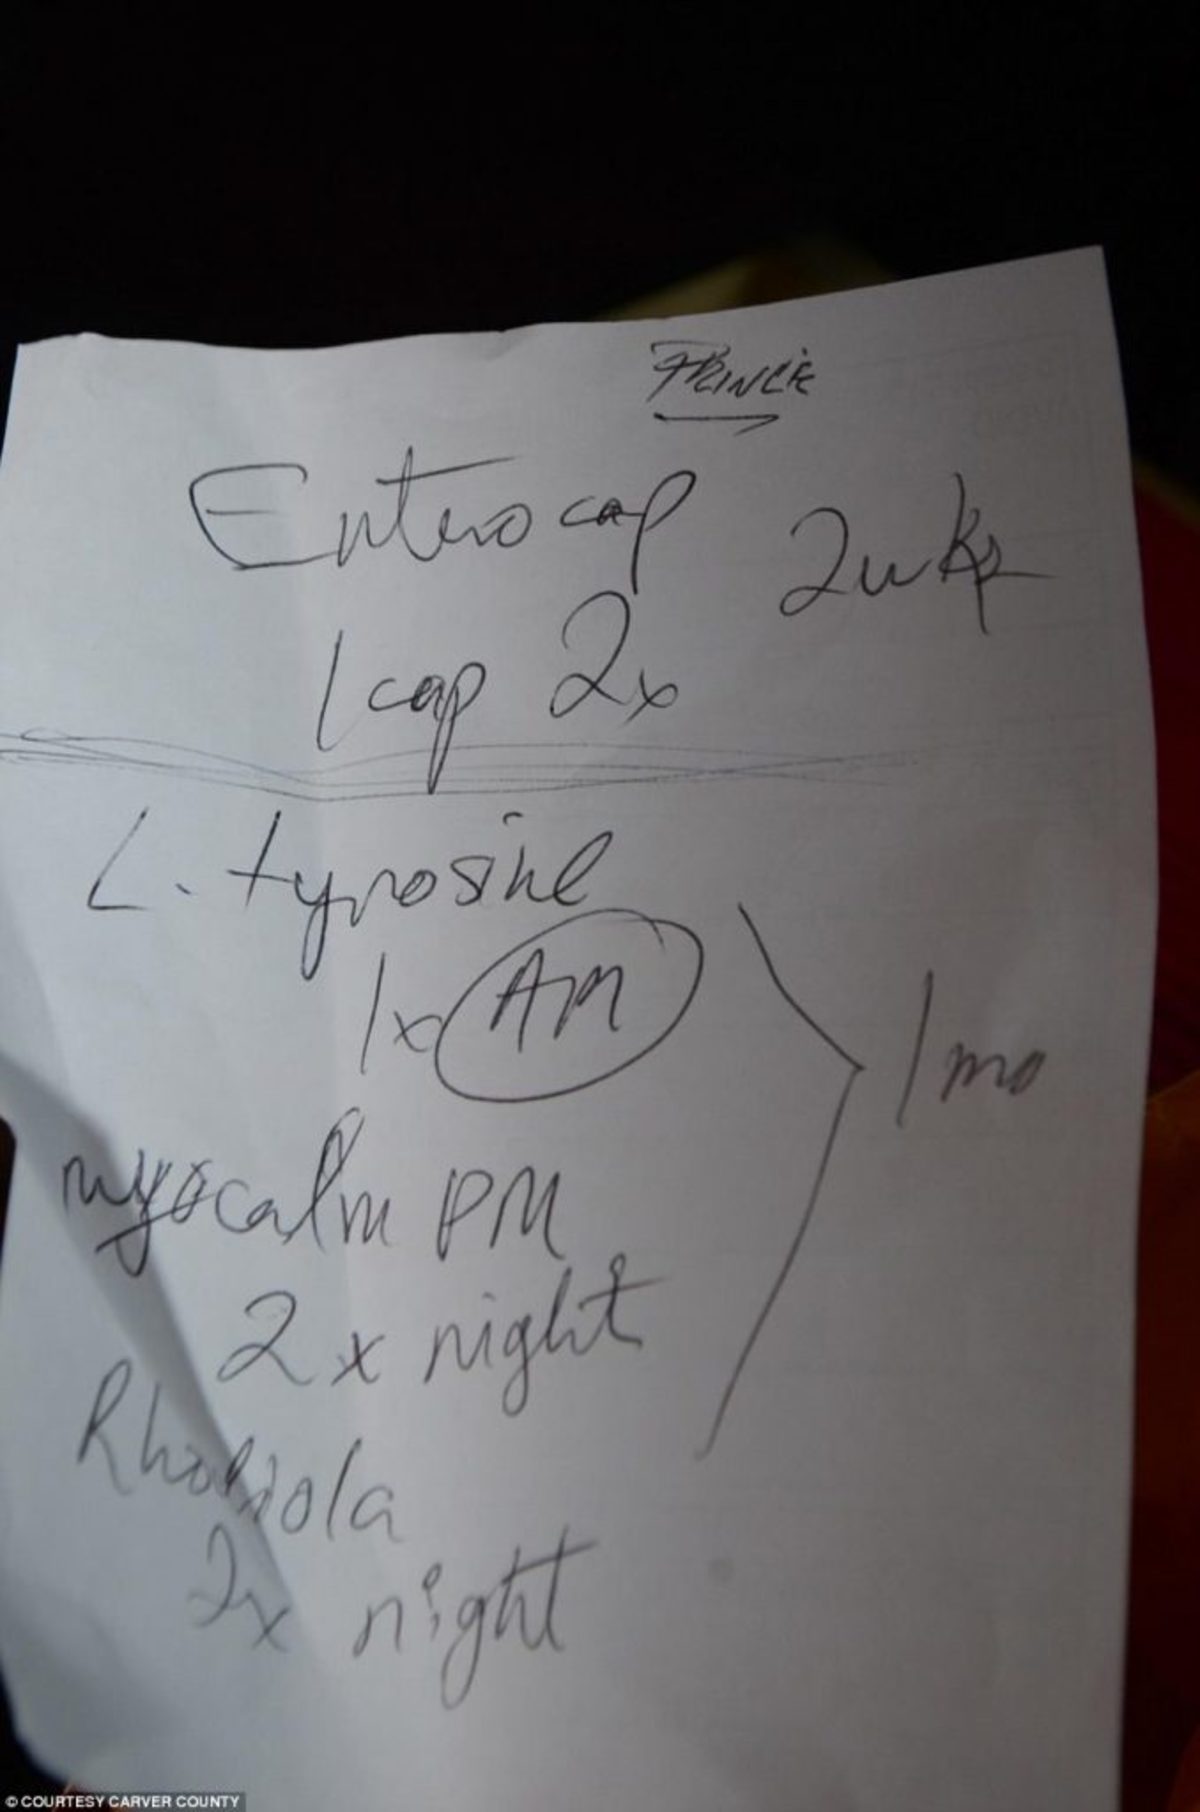 PRINCE
Enterocap 2wks
1cap 2x
L. tyrosine
1x AM
1mo
myocalm PM
2x night
Rhodiola
2x night
© COURTESY CARVER COUNTY